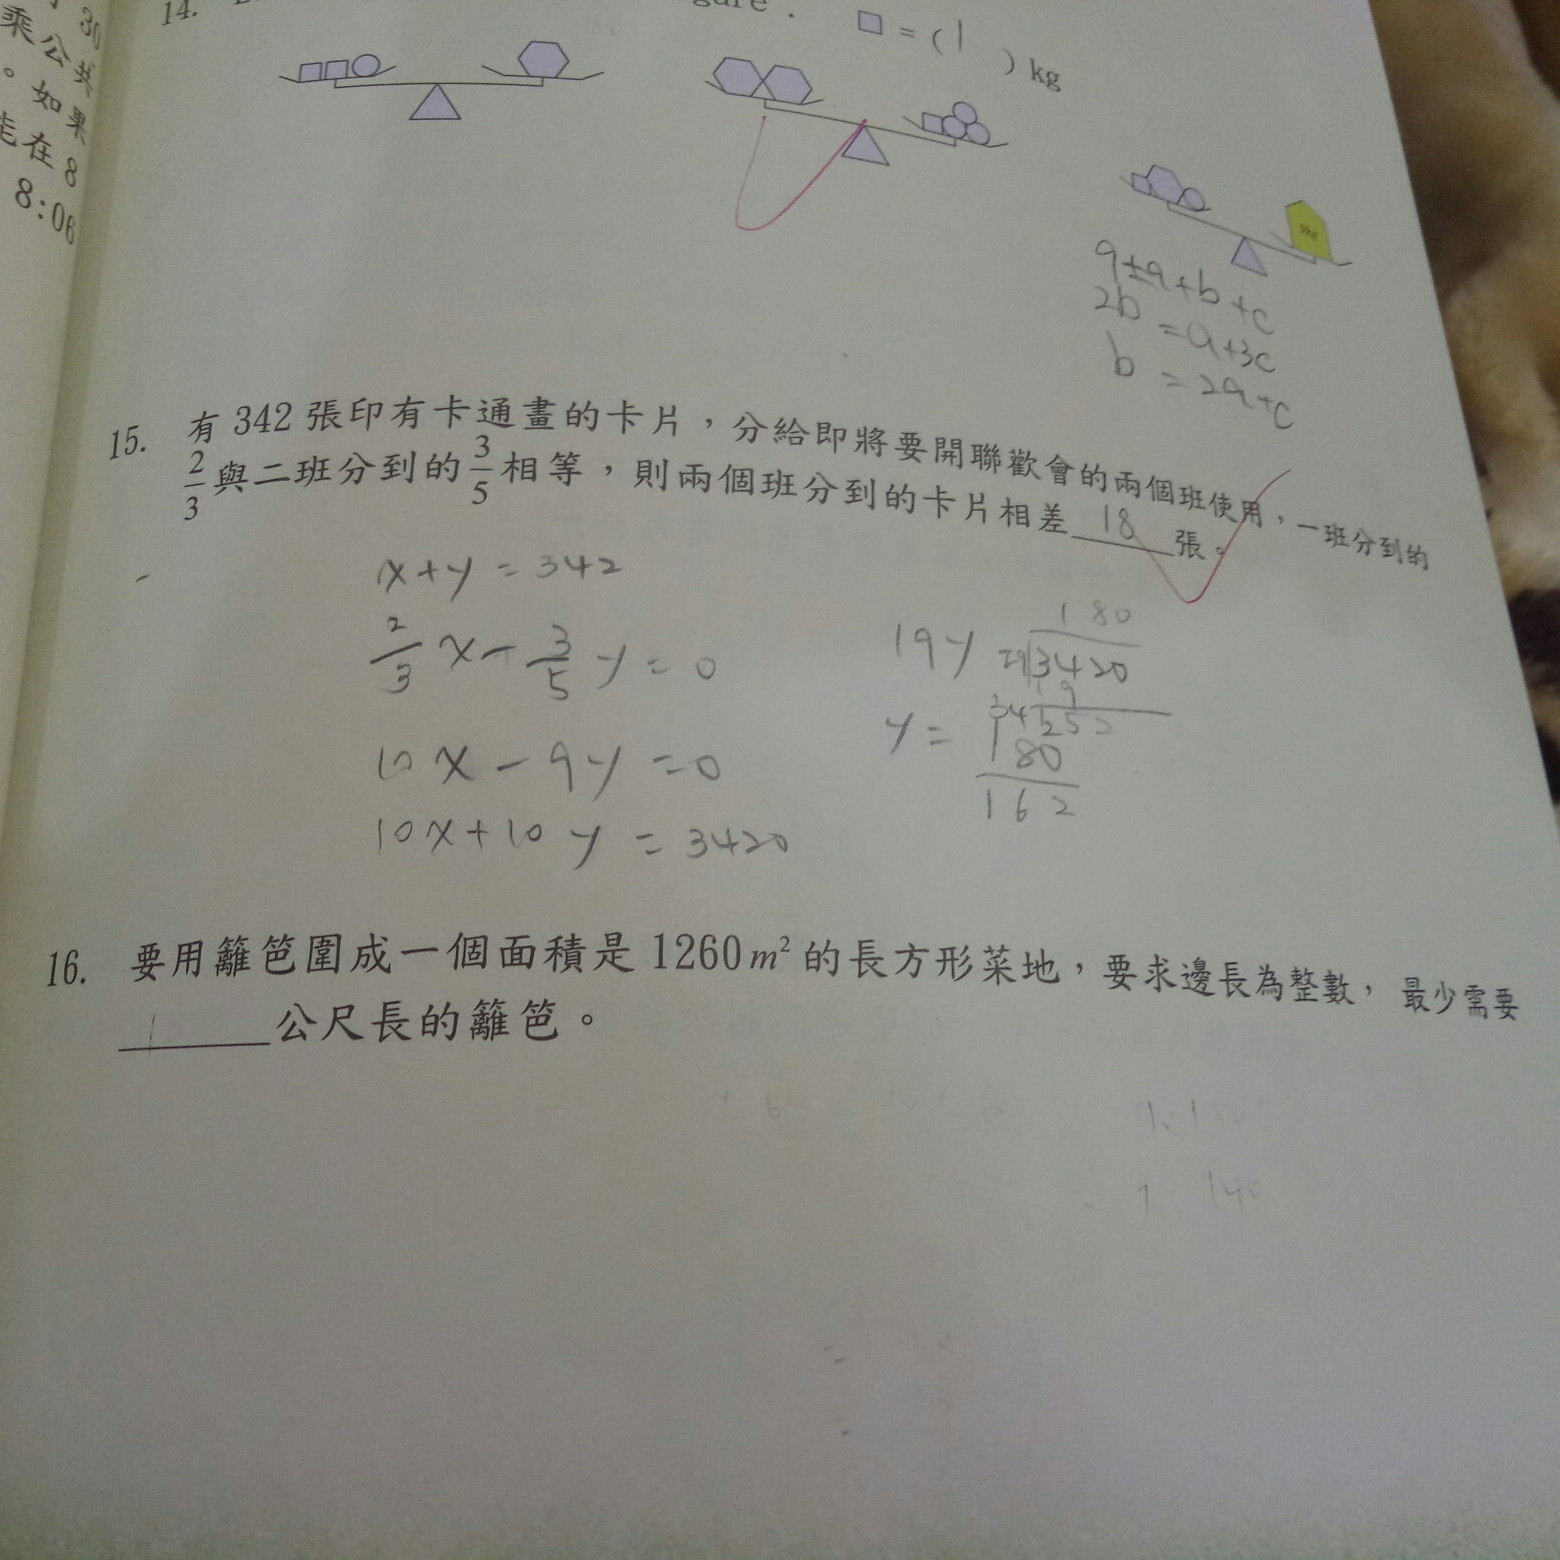 30
乘公共
。如果
能在8
8:06
14.
gure .
□ = ( 1 ) kg
9kg
9 = a + b + c
2b = a + 3c
b = 2a + c
15. 有 342 張印有卡通畫的卡片，分給即將要開聯歡會的兩個班使用，一班分到的
2/3 與二班分到的 3/5 相等，則兩個班分到的卡片相差 18 張。
x + y = 342
2/3 x - 3/5 y = 0
10x - 9y = 0
10x + 10y = 3420
19y
180
3420
y =
180
162
16. 要用籬笆圍成一個面積是 1260 m² 的長方形菜地，要求邊長為整數， 最少需要
公尺長的籬笆。